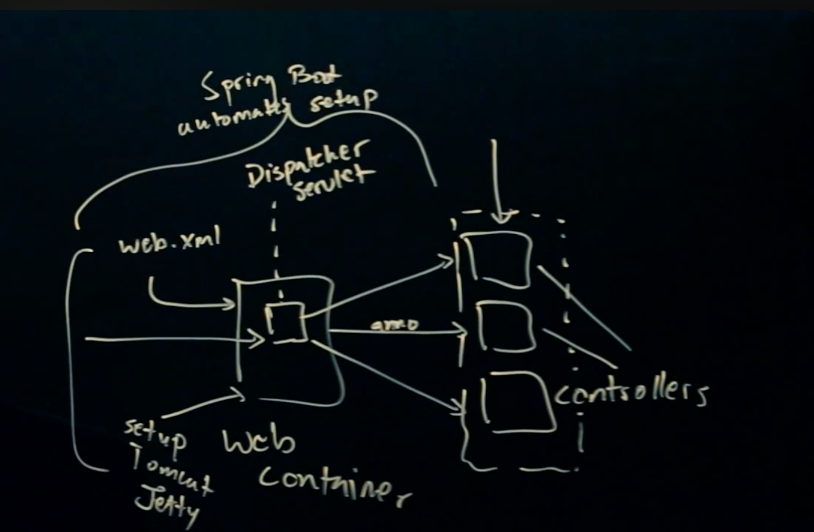 Spring Boot
automates setup
Dispatcher
Servlet
web.xml
anno
controllers
setup
Tomcat
Jetty
Web
container